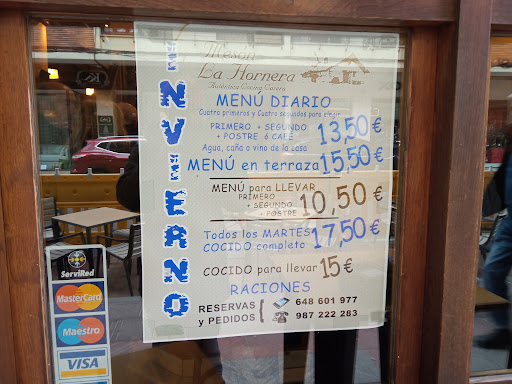 INVIERNO
Mesón
La Hornera
Auténtica Cocina Casera
MENÚ DIARIO
Cuatro primeros y Cuatro segundos para elegir
PRIMERO + SEGUNDO
+ POSTRE ó CAFÉ
13,50 €
Agua, caña o vino de la casa
MENÚ en terraza 15,50 €
MENÚ para LLEVAR
PRIMERO
+ SEGUNDO
+ POSTRE
10,50 €
Todos los MARTES
COCIDO completo
17,50 €
COCIDO para llevar 15 €
RACIONES
RESERVAS
y PEDIDOS
648 601 977
987 222 283
ServiRed
MasterCard
Maestro
VISA